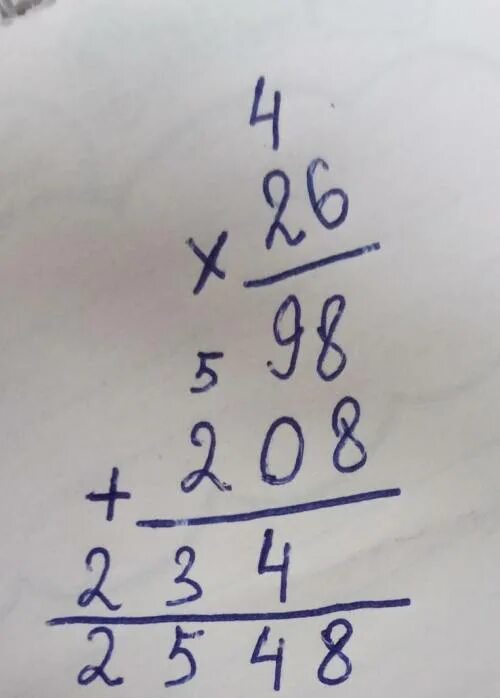 4
26
×
98
5
208
+
234
2548